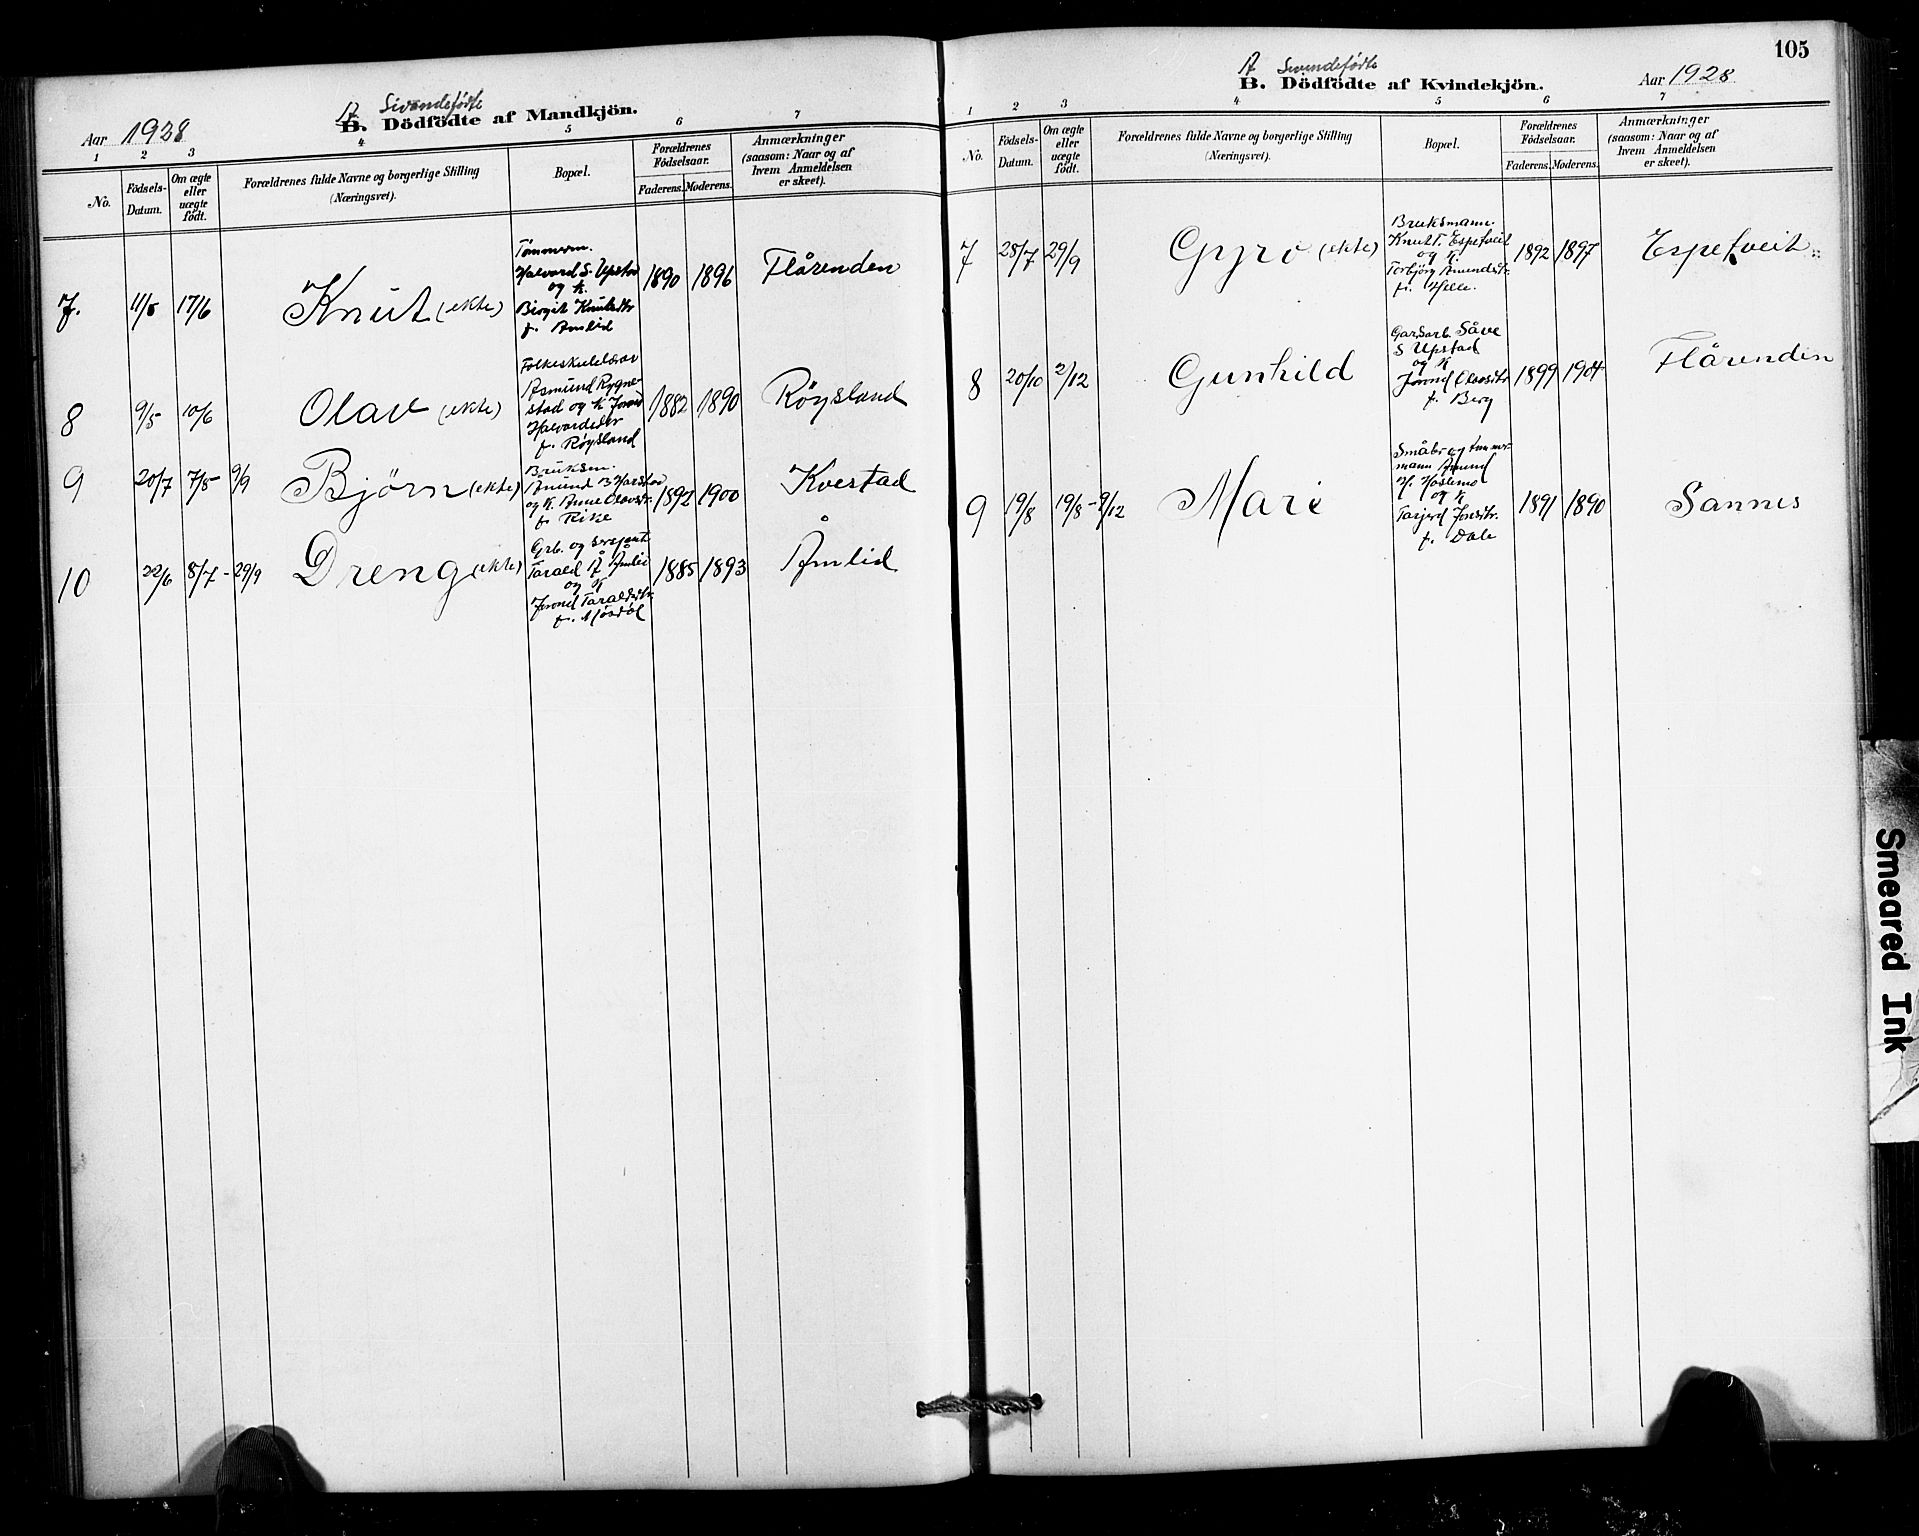 A Livendefødte
B. Dödfödte af Mandkjön.
Aar 1928
1 2 3 4 5 6 7
No.
Födsels-
Datum.
Om ægte
eller
uægte
födt.
Forældrenes fulde Navne og borgerlige Stilling
(Næringsvei).
Bopæl.
Forældrenes
Födselsaar.
Faderens. Moderens.
Anmærkninger
(saasom: Naar og af
hvem Anmeldelsen
er skeet).
7. 11/5 17/6 Knut (ekte)
Tømmerm.
Halvard S. Upstad
og k.
Birgit Knutsdtr
f. Amlid
1890 1896 Flårenden
8 9/5 10/6 Olav (ekte)
Folkeskulelærar
Asmund Rygne-
stad og k Jorond
Halvardsdtr
f. Røysland
1882 1890 Røysland
9 20/7 7/8 - 9/9 Bjørn (ekte)
Bruksm.
Anund B Harstad
og k. Anne Olavsdtr.
f. Rike
1892 1900 Kvestad
10 22/6 8/7 - 29/9 Dreng (ekte)
Grb. og sersjant
Tarald Å Amlid
og k
Jorond Taraldsdtr.
f. Mosdøl
1885 1893 Åmlid
105
A Livendefødte
B. Dödfödte af Kvindekjön.
Aar 1928.
1 2 3 4 5 6 7
No.
Födsels-
Datum.
Om ægte
eller
uægte
födt.
Forældrenes fulde Navne og borgerlige Stilling
(Næringsvei).
Bopæl.
Forældrenes
Födselsaar.
Faderens. Moderens.
Anmærkninger
(saasom: Naar og af
hvem Anmeldelsen
er skeet).
7 28/7 29/9 Gyro (ekte)
Bruksmann.
Knut T. Espetveit
og k.
Torbjørg Amundsdtr.
f. Helle.
1892 1897 Espetveit
8 20/10 2/12 Gunhild
Gardarb. Såve
S Upstad
og k
Jorond Olavsdtr
f. Berg
1899 1904 Flårenden
9 19/8 19/8 - 9/12 Mari
Småbr og tømmer-
mann Amund
H. Haslemo
og k
Targjerd Jonsdtr.
f. Dale
1891 1890 Sannes
Smeared Ink